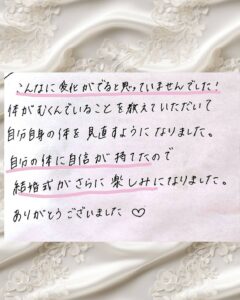 こんなに変化がでると思っていませんでした!
体がむくんでいることを教えていただいて
自分自身の体を見直すようになりました。
自分の体に自信が持てたので
結婚式がさらに楽しみになりました。
ありがとうございました ♡